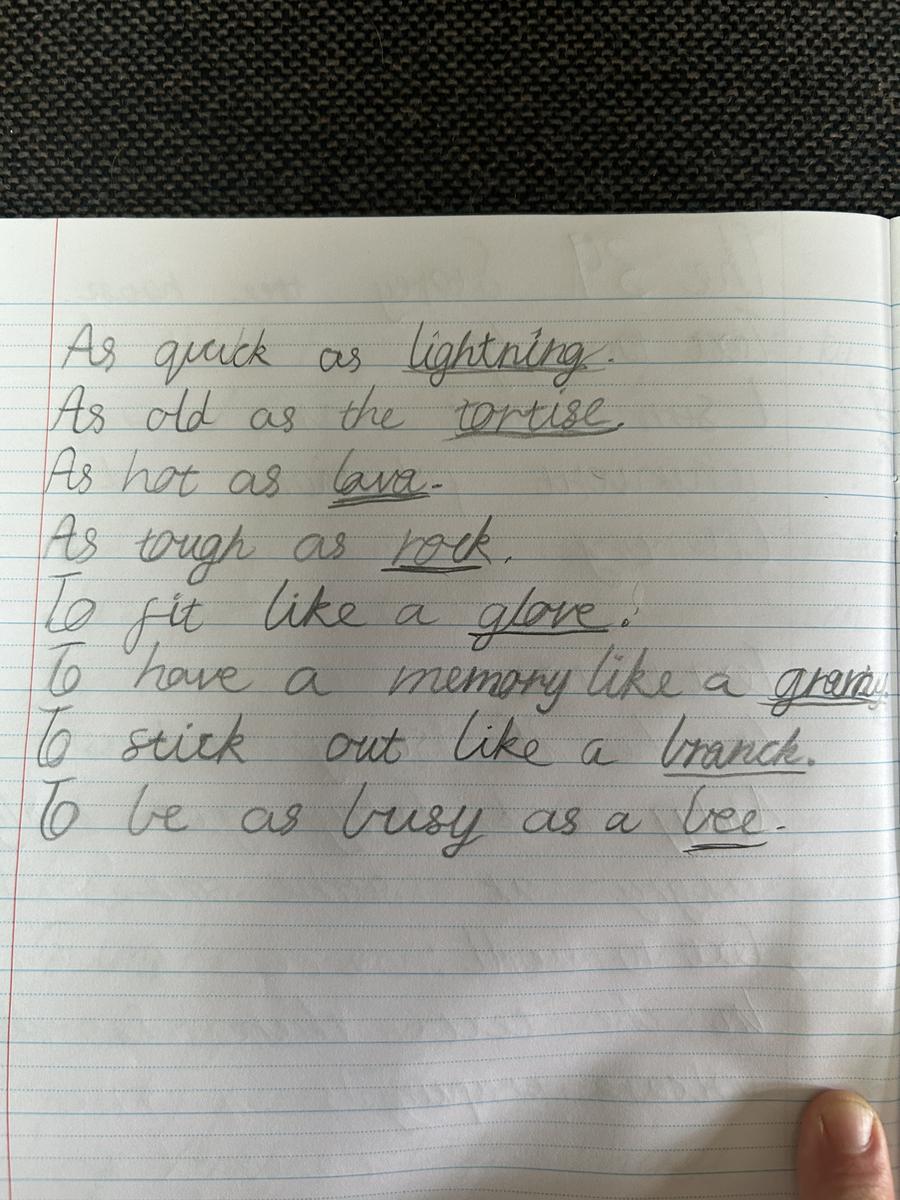 As quick as lightning.
As old as the tortise.
As hot as lava.
As tough as rock.
To fit like a glove.
To have a memory like a
To stick out like a branch.
To be as busy as a bee.